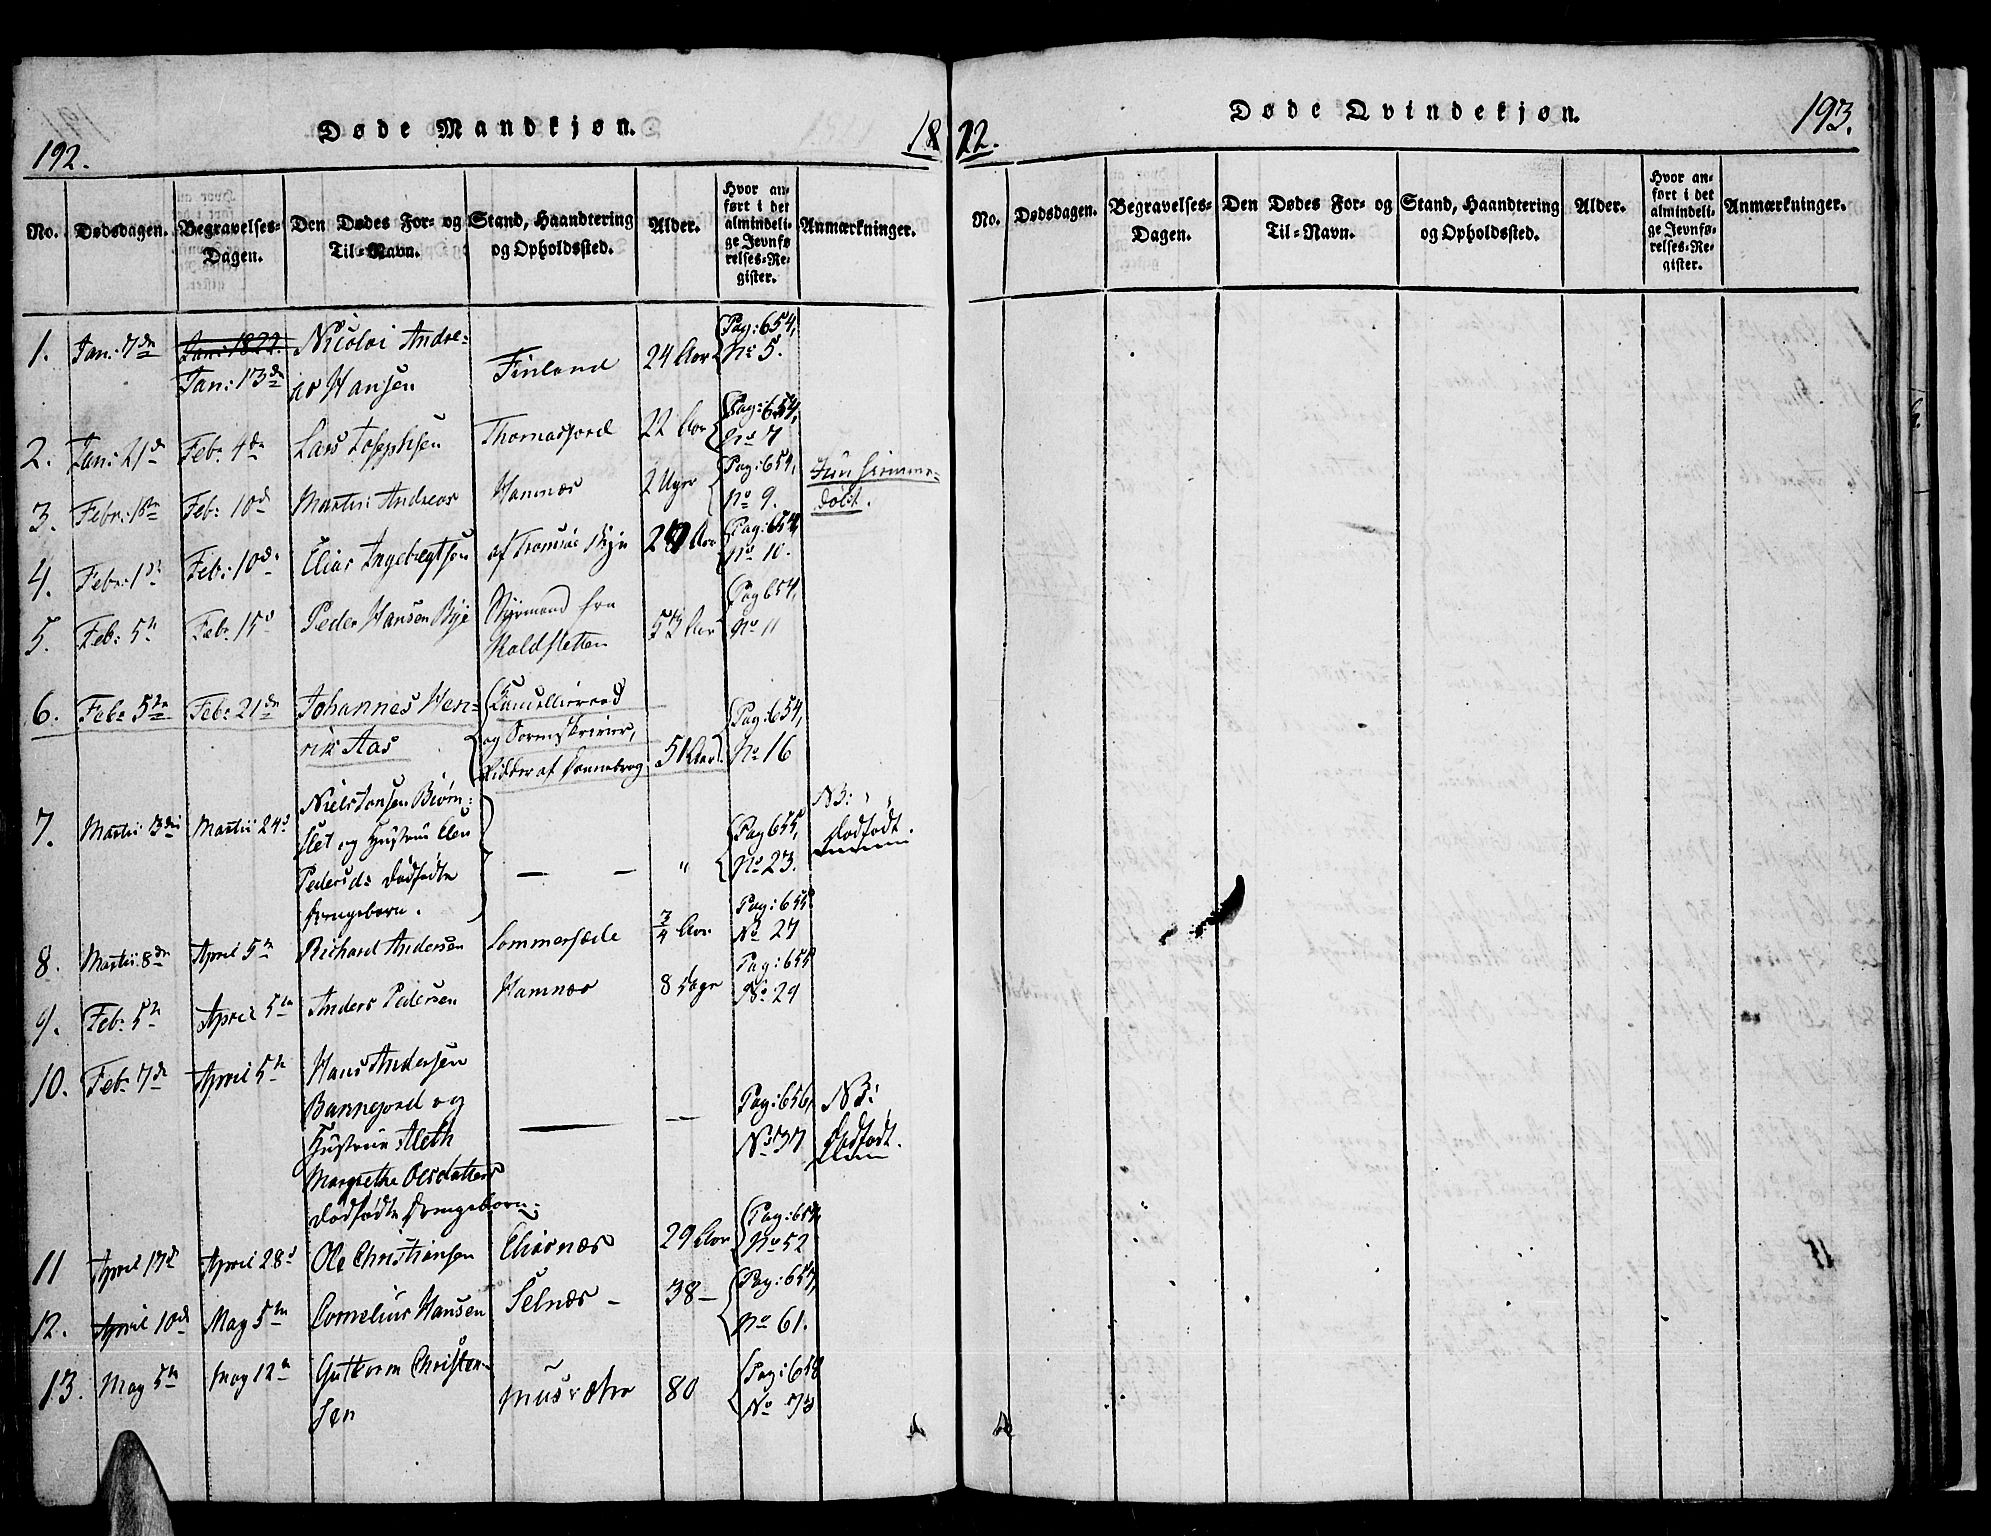 192.
Døde Mandkjøn.
18
No.
Dødsdagen.
Begravelses-
Dagen.
Den Dødes For- og
Til-Navn.
Stand, Haandtering
og Opholdssted.
Alder.
Hvor an-
ført i det
almindeli-
ge Jevnfø
relses-Re-
gister.
Anmærkninger.
1. Jan: 7de Jan: 1822. Nicolai Andre- Pag: 654,
Jan: 13de as Hansen Finland 24 Aar No 5.
2. Jan: 21de Feb: 4de Lars Josephsen Thomasjord 22 Aar Pag: 654,
No 7
3. Febr: 1ste Feb: 10de Martin Andreas Hamnæs 2 Uger Pag: 654, hjemme-
No 9. døbt.
4. Febr: 1ste Feb: 10de Elias Ingebregtsen af Tromsøe Aar Pag: 654,
No 10.
5. Feb: 5te Feb: 15de Peder Hansen Bye Styrmand fra 53 Aar Pag 654,
No 11
6. Feb: 5te Feb: 21de Johannes Hen- Cancelliraad Pag: 654,
rik Aas og Sorenskriver, No 16
Ridder af Dannebrog 51 Aar.
7. Martii 3die Martii 24de Niels Jonsen Biørn- NB:
slet og Hustrue Elen Pag 655, Dødfødt.
Pedersd: dødfødte — — " No 23.
Drengebarn.
8. Martii 8de April 5te Richard Andersen Sommersæde 3/4 Aar Pag: 655
No 27
9. Feb: 5te April 5te Anders Pedersen Hamnæs 8 Dage Pag: 655
No 29
10. Feb: 7de April 5te Hans Andersen
Bannejord og — — Pag: 656, NB:
Hustrue Aleth No 37 Dødfødt.
Margrethe Olsdatters
dødfødte Drengebarn.
11 April 17de April 28de Ole Christiansen 29 Aar Pag: 657,
No 52
12. April 10de May 5te Cornelius Hansen Selnæs — 38 — Pag: 657,
No 61.
13. May 5te May 12te Guttorm Christen- 80 Pag: 658
sen No 73
22.
Døde Qvindekjøn.
193.
No.
Dødsdagen.
Begravelses-
Dagen.
Den Dødes For- og
Til-Navn.
Stand, Haandtering
og Opholdssted.
Alder.
Hvor an-
ført i det
almindeli-
ge Jevnfø-
relses-Re-
gister.
Anmærkninger.